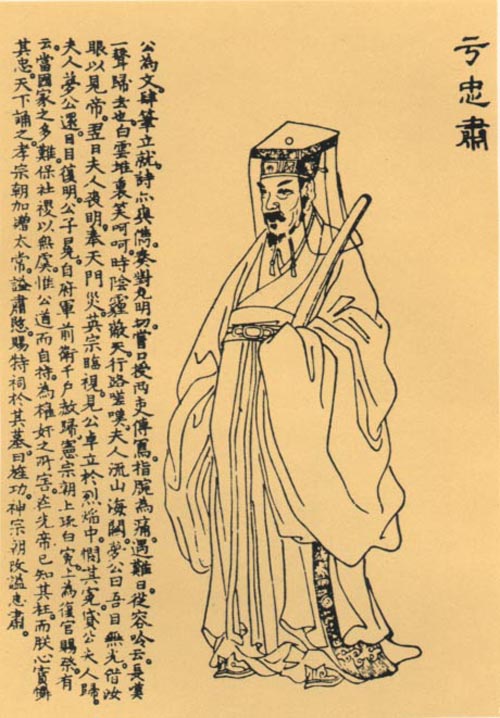 亏忠肅
公為文。肆筆立就。詩亦奥儁。奏對尤明切。嘗口授两吏。傳寫指腕為痛。遇難日。從容吟云。長嘆
一聲歸去也。白雲堆裏笑呵呵。時陰霾蔽天。行路嗟嘆。夫人流山海關。夢公曰。吾目無光。借汝
眼以見帝。翌日夫人喪明。奉天門災。英宗臨視。見公卓立於烈焰中。憫其寃。貸公夫人歸。
夫人夢公還目。目復明。公子冕。自府軍前衛千户赦歸。憲宗朝上疏白寃。上為復官賜祭。有
云。當國家之多難。保社稷以無虞。惟公道而自持。為權奸之所害。在先帝已知其枉。而朕心實憐
其忠。天下誦之。孝宗朝加贈太常。謚肅愍。賜特祠於其墓。曰旌功。神宗朝改謚忠肅。